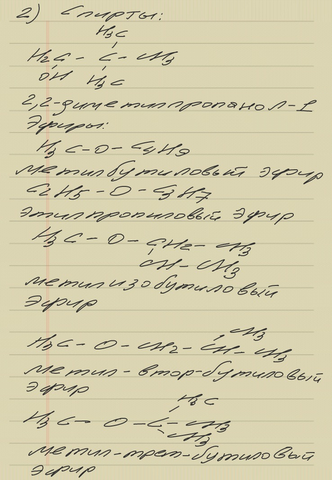 2) Спирты:
H₃C
H₂C - C - CH₃
OH H₃C
2,2-диметилпропанол-1
Эфиры:
H₃C - O - C₄H₉
метилбутиловый эфир
C₂H₅ - O - C₃H₇
этилпропиловый эфир
H₃C - O - CH₂ - CH₃
CH - CH₃
метилизобутиловый
эфир
CH₃
H₃C - O - CH₂ - CH - CH₃
метил-втор-бутиловый
эфир
H₃C
H₃C - O - C - CH₃
CH₃
метил-трет-бутиловый
эфир